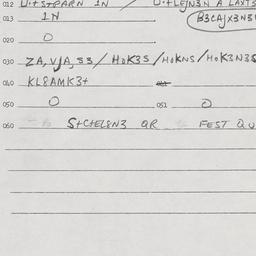 012 U.+S+PARN 1N / U.+LEJN3N A LAXTS
013 1N B3CAJX3N3
020 O
030 ZA, VJA, 53 / HOK3S / HOKNS / HOK3N3S
040 KL8AMK3+
050 O 051 O
060 S+C+EL8N3 QR FEST QU